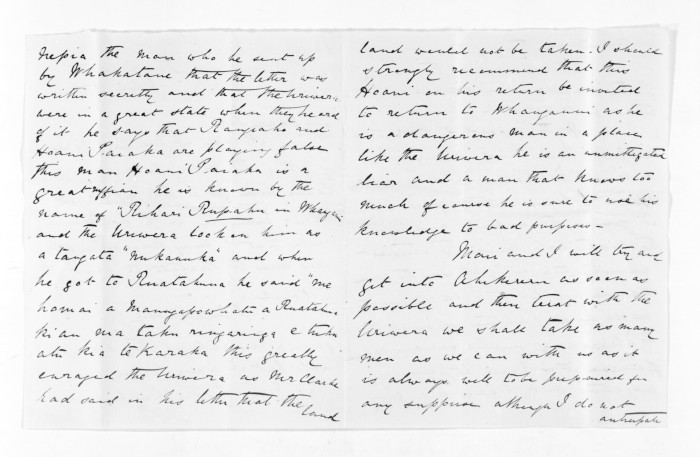 nepia the man who he sent up
by Whakatane that the letter was
written secretly and that the Uriwera
were in a great state when they heard
of it he says that Rangiaho and
Hoani Paiaka are playing false
this man Hoani Paiaka is a
great ruffian he is known by the
name of "Rihari Rupahu in Whanganui
and the Uriwera look on him as
a tangata "nukanuka" and when
he got to Ruatahuna he said "me
homai a Maungapowhatu a Ruatahuna
ki au ma taku ringaringa e tuku
atu kia te Karaka this greatly
enraged the Uriwera as Mr Clarke
had said in his letter that the
land
land would not be taken. I should
strongly recommend that this
Hoani on his return be invited
to return to Whanganui as he
is a dangerous man in a place
like the Uriwera he is an unmitigated
liar and a man that knows too
much of course he is sure to use his
knowledge to bad purposes –
Mair and I will try and
get into Ahikereru as soon as
possible and then treat with the
Uriwera we shall take as many
men as we can with us as it
is always well to be prepaired for
any suppise athough I do not
anticipate